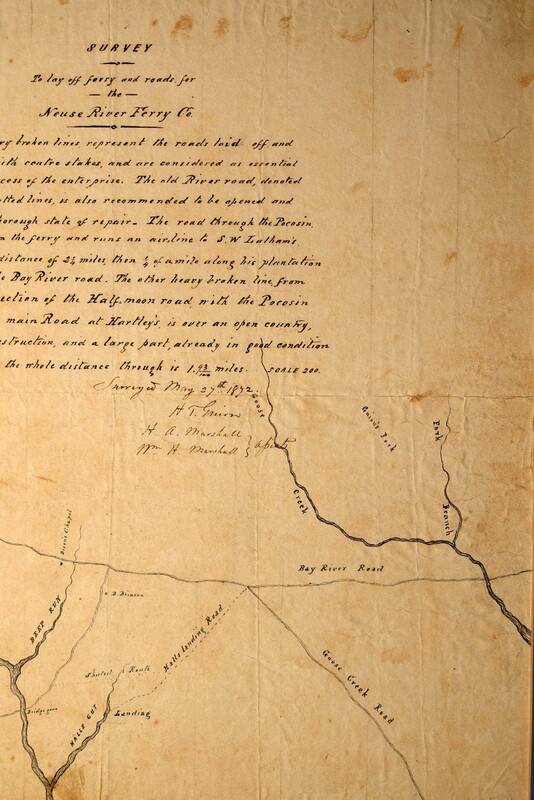 SURVEY
To lay off ferry and roads for
— the —
Neuse River Ferry Co.
ry broken lines, represent the roads laid off and
ith centre stakes, and are considered as essential
cess of the enterprise. The old River road, denoted
tted lines, is also recommended to be opened and
horough state of repair. The road through the Pocosin,
m the ferry and runs an airline to S.W. Latham's
distance of 2¼ miles, then ¼ of a mile along his plantation
e Bay River road. The other heavy broken line, from
ection of the Half-moon road with the Pocosin
main Road at Hartley's, is over an open country,
struction, and a large part, already in good condition
the whole distance through is 1.93/100 miles. SCALE 200.
Surveyed May 27th 1872.
H T. Guion
H A. Marshall
Wm H. Marshall
Goose
Creek
Fork
Branch
Bay River Road
Chapel
DEEP RUN
Halls Landing Road
Shortest Route
HALLS GUT
Landing
Bridge gone
Goose Creek Road